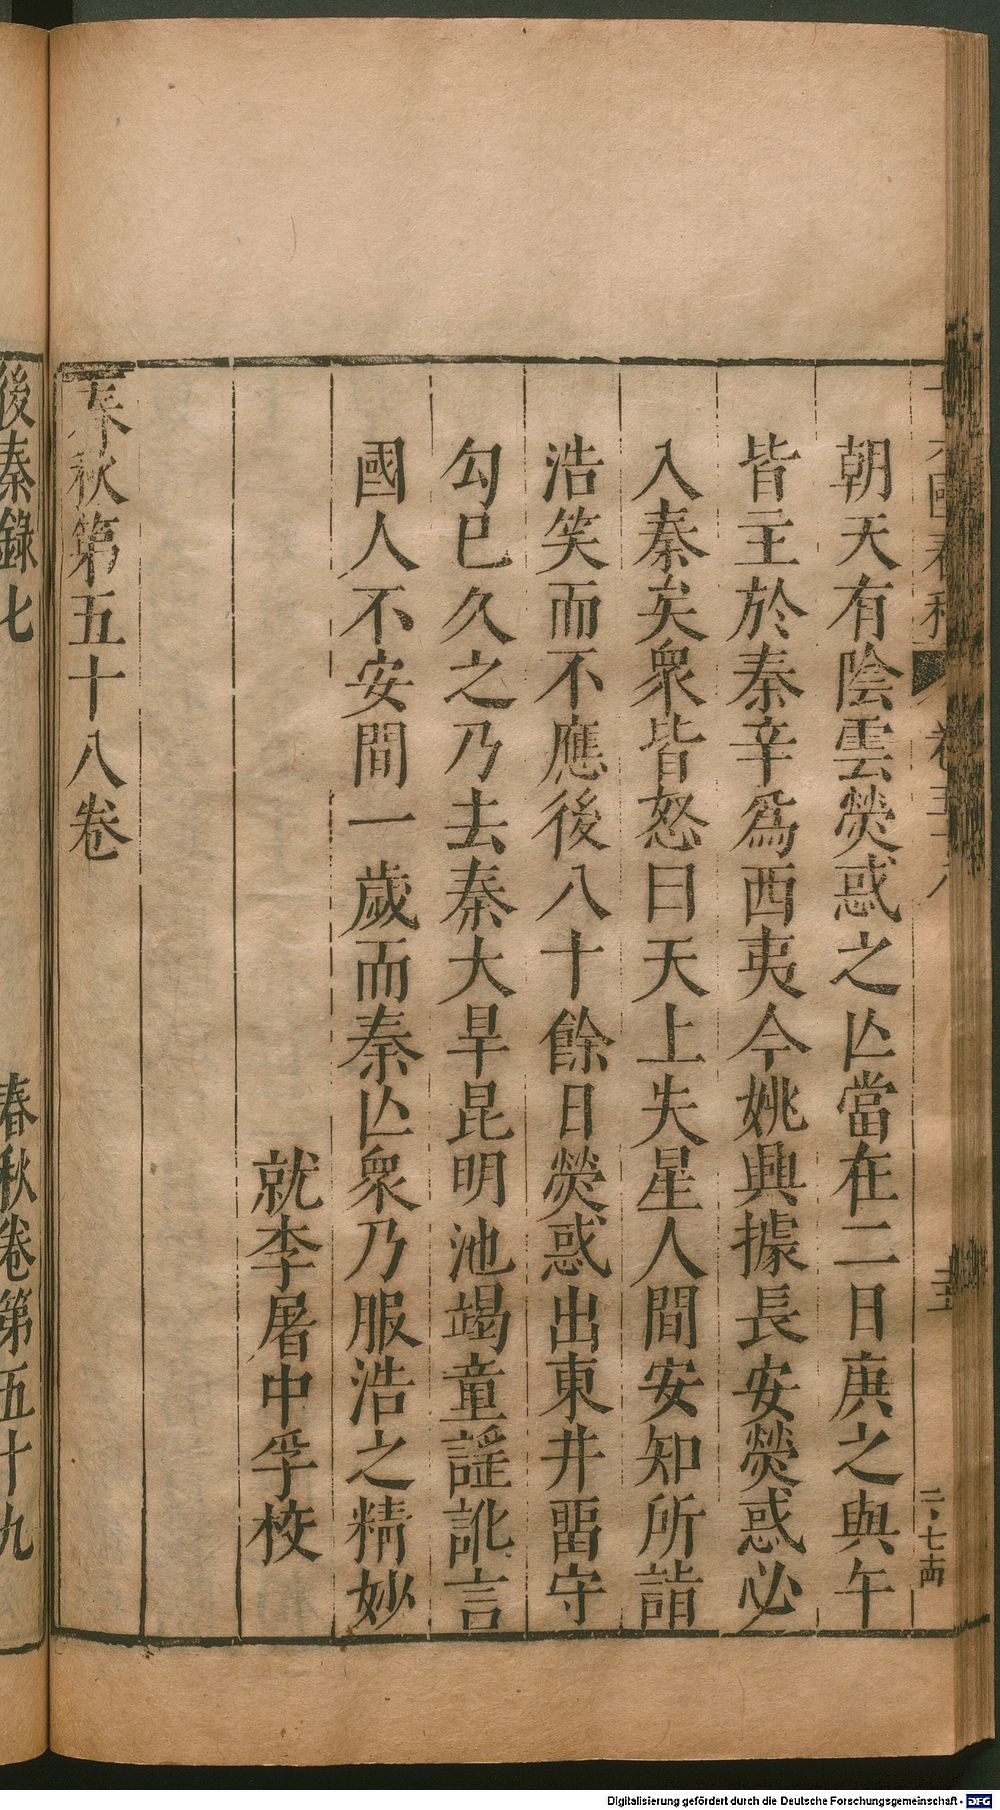 朝天有陰雲熒惑之亾當在二日庚之與午
皆主於秦辛爲西夷今姚興據長安熒惑必
入秦矣衆皆怒曰天上失星人間安知所詣
浩笑而不應後八十餘日熒惑出東井畱守
勾巳久之乃去秦大旱昆明池竭童謡訛言
國人不安間一歲而秦亾衆乃服浩之精妙
就李屠中孚校
春秋第五十八卷
後秦錄七
春秋卷第五十九
Digitalisierung gefördert durch die Deutsche Forschungsgemeinschaft - DFG